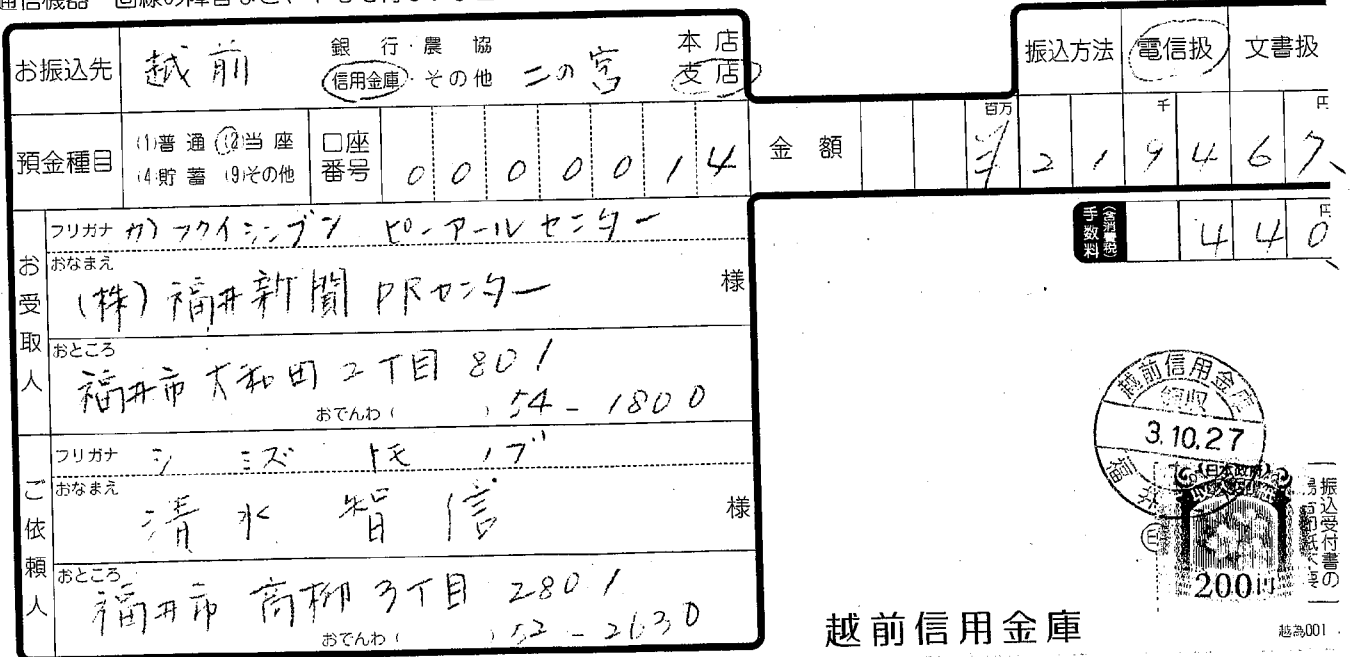 お振込先 越前 銀行・農協 信用金庫・その他 二の宮 本店 支店 振込方法 電信扱 文書扱
預金種目 (1)普通 (2)当座 (4)貯蓄 (9)その他 口座番号 0 0 0 0 0 1 4 金額 百万 千 円 ¥ 2 1 9 4 6 7
手数料 (含消費税) 円 4 4 0
お受取人
フリガナ カ)フクイシンブン ピーアールセンター
おなまえ (株)福井新聞PRセンター 様
おところ 福井市大和田2丁目801
おでんわ( ) 54-1800
ご依頼人
フリガナ シミズ トモノブ
おなまえ 清水 智信 様
おところ 福井市 高柳3丁目 2801
おでんわ( ) 52-2630
越前信用金庫
領収
3.10.27
福井
日本政府
200円
印
越前信用金庫
越為001